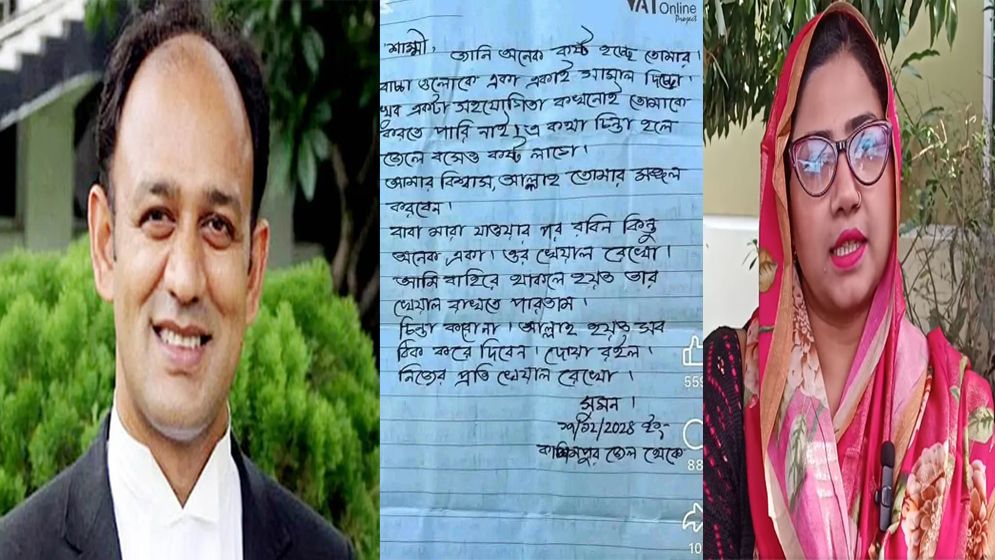 VAT Online
Project
শাম্মী, জানি অনেক কষ্ট হচ্ছে তোমার।
বাচ্চা গুলোকে একা একাই সামাল দিচ্ছো।
খুব একটা সহযোগিতা কখনোই তোমাকে
করতে পারি নাই। এ কথা চিন্তা হলে
জেলে বসেও কষ্ট লাগে।
আমার বিশ্বাস, আল্লাহ তোমার মঙ্গল
করবেন।
বাবা মারা যাওয়ার পর রবিন কিন্তু
অনেক একা। ওর খেয়াল রেখো।
আমি বাহিরে থাকলে হয়ত তার
খেয়াল রাখতে পারতাম।
চিন্তা করোনা। আল্লাহ হয়ত সব
ঠিক করে দিবেন। দোয়া রইল।
নিজের প্রতি খেয়াল রেখো।
সুমন।
/02/2028 ইং
কাশিমপুর জেল থেকে
559
88
10